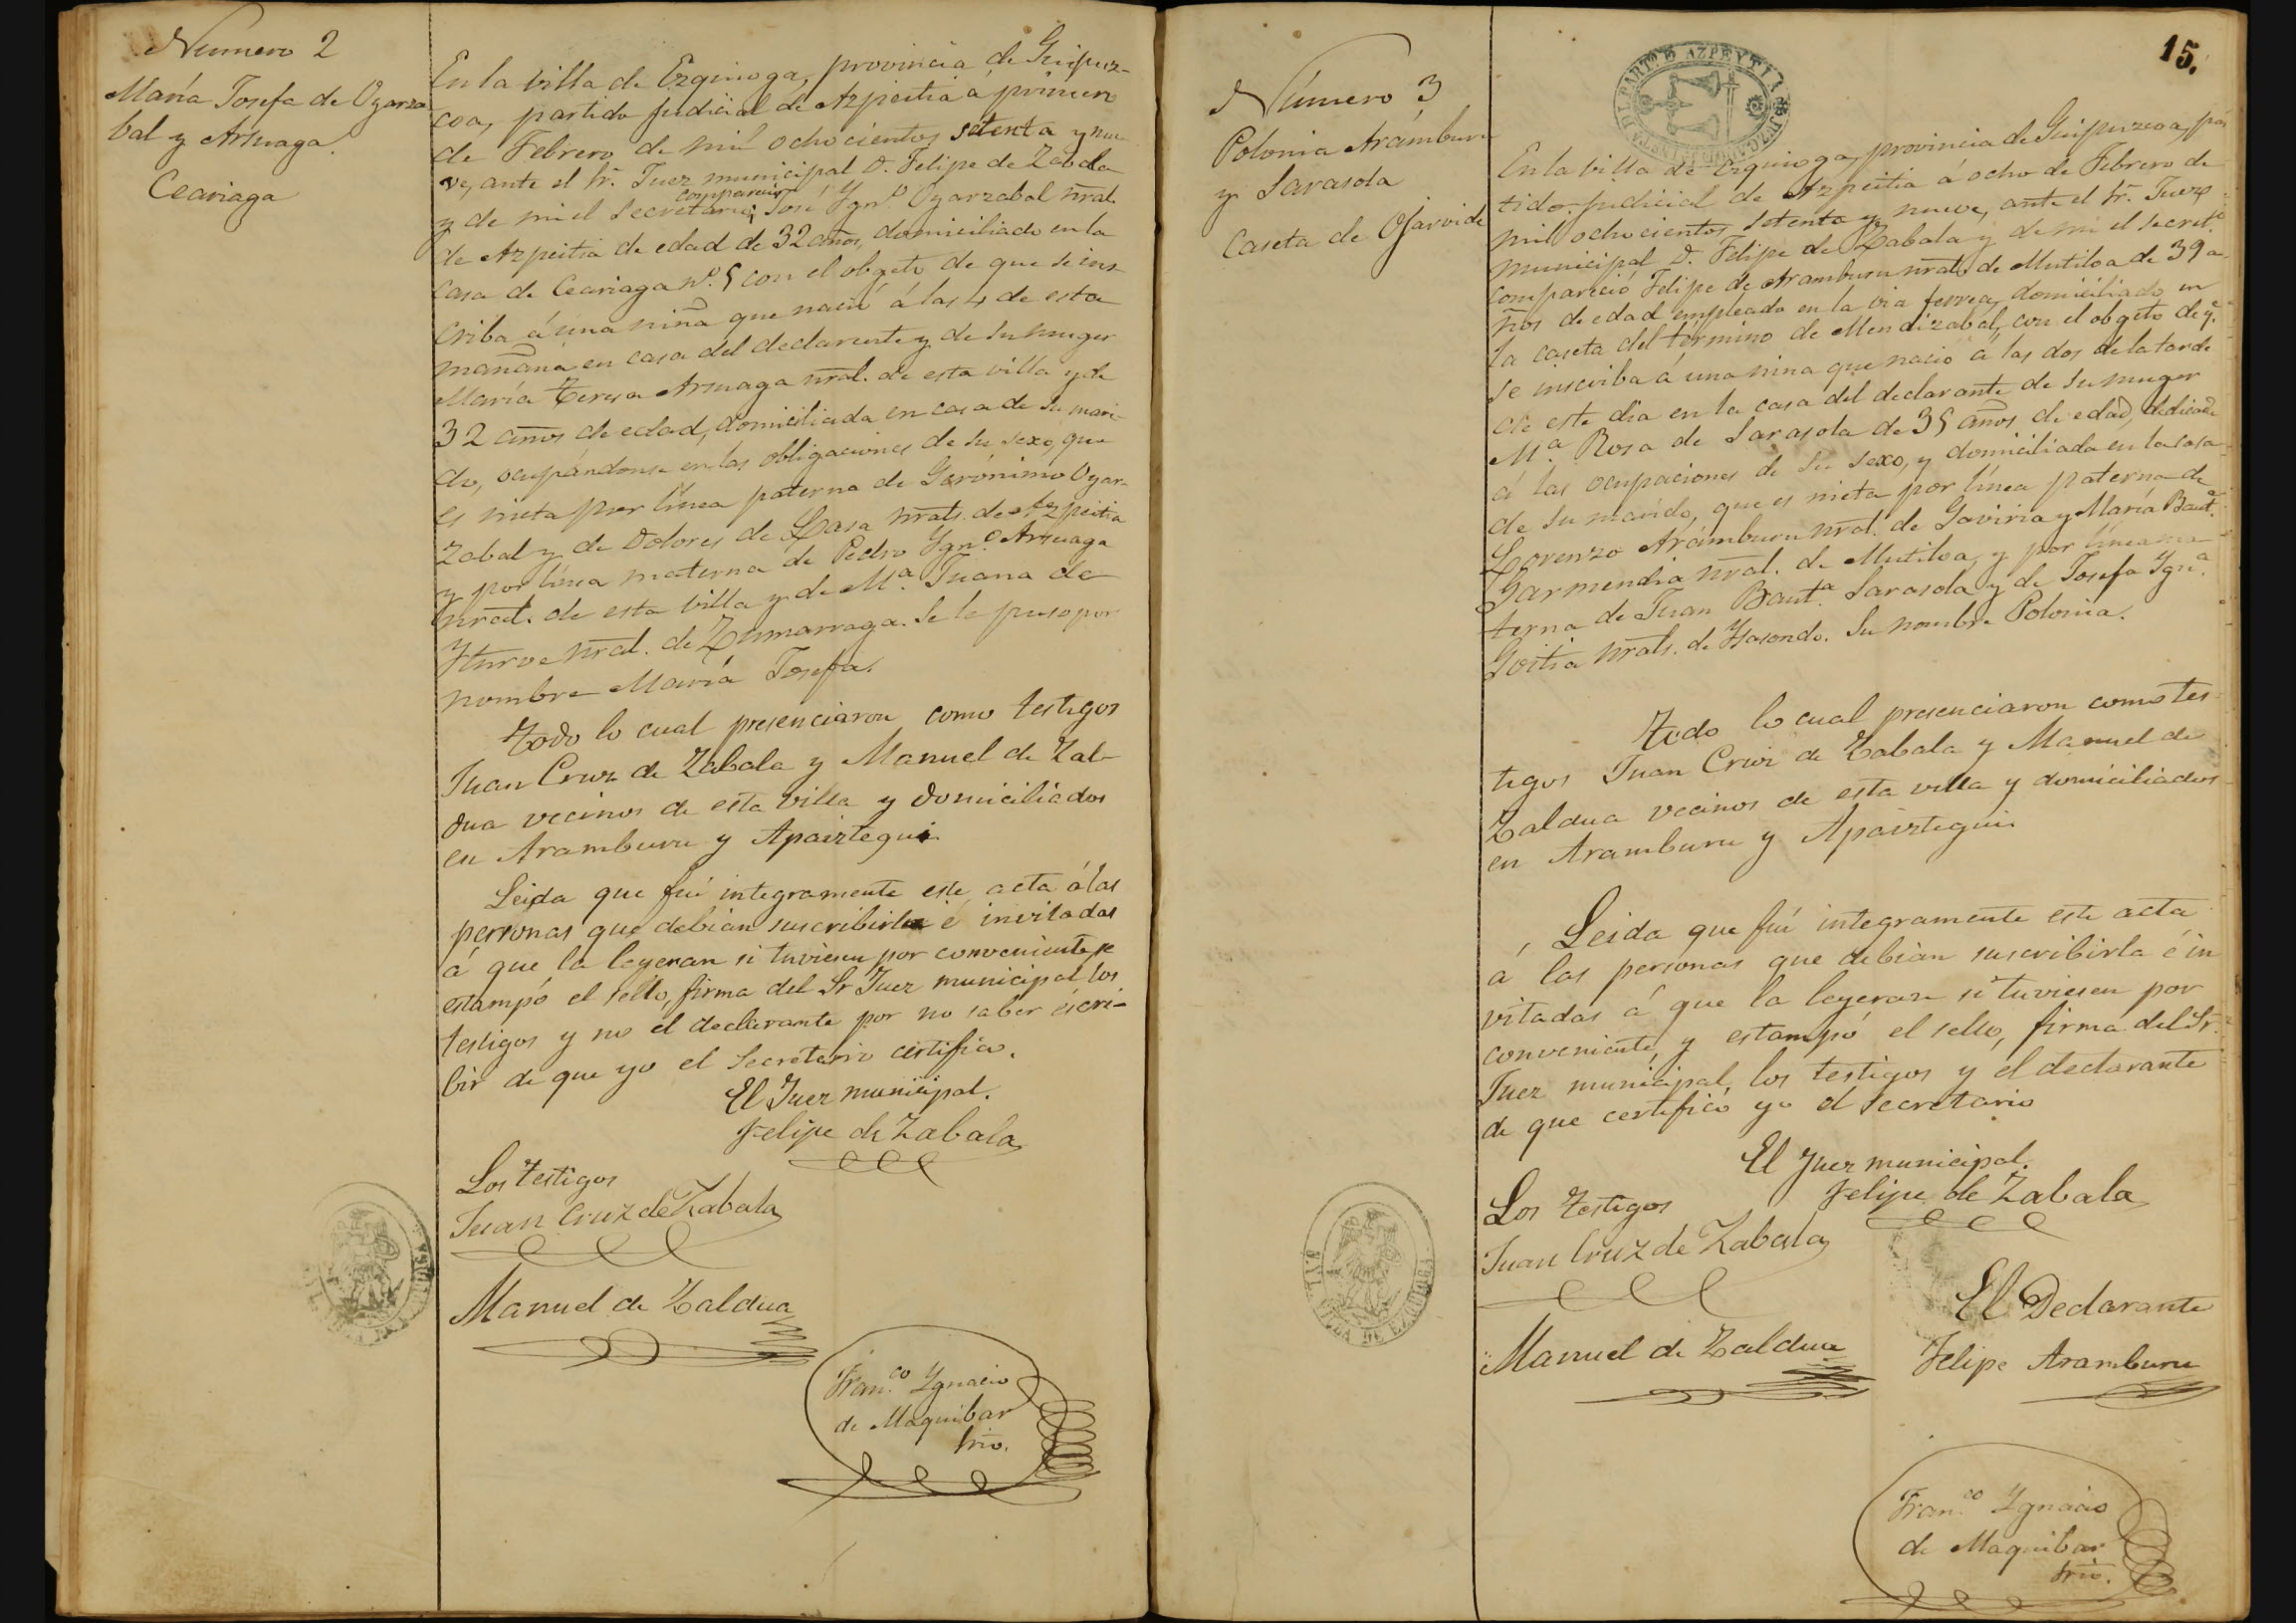 Número 2
María Josefa de Oyarza
bal y Arsuaga.
Ceariaga
En la villa de Ezquioga, provincia de Guipuz-
coa, partido judicial de Azpeitia á primero
de Febrero de mil ochocientos setenta y nue
ve, ante el Sr. Juez municipal D. Felipe de Zabala
compareció
y de mi el Secretario, José Ygn.º Oyarzabal nral.
de Azpeitia de edad de 32 años, domiciliado en la
casa de Ceariaga nº. 5 con el objeto de que se ins-
criba á una niña que nació á las 4 de esta
mañana en casa del declarante y de su muger
María Teresa Arsuaga nral. de esta villa y de
32 años de edad, domiciliada en casa de su mari-
do, ocupándose en las obligaciones de su sexo, que
es nieta por línea paterna de Gerónimo Oyar-
zabal y de Dolores de Lasa nrals. de Azpeitia
y por línea materna de Pedro Ygn.º Arsuaga
nral. de esta villa y de M.ª Juana de
Yturve nral. de Zumarraga. Se le puso por
nombre María Josefa.
Todo lo cual presenciaron como testigos
Juan Cruz de Zabala y Manuel de Zal-
dua vecinos de esta villa y domiciliados
en Aramburu y Apaiztegui.
Leida que fué integramente este acta á las
personas que debian suscribirla é invitadas
á que la leyeran si tuviesen por conveniente, se
estampó el sello, firma del Sr Juez municipal, los
testigos y no el declarante por no saber escri-
bir de que yo el Secretario certifico.
El Juez municipal.
Felipe de Zabala
Los Testigos
Juan Cruz de Zabala
Manuel de Zaldua
Fran.co Ygnacio
de Maquibar
Srio.
15.
JUZGADO
PART.º D AZPEYTIA
Número 3
Polonia Arámburu
y Sarasola
Caseta de Ojarvide
En la villa de Ezquioga, provincia de Guipuzcoa, par
tido judicial de Azpeitia á ocho de Febrero de
mil ochocientos setenta y nueve, ante el Sr. Juez
municipal D. Felipe de Zabala y de mi el Secret.º
compareció Felipe de Aramburu nral. de Mutiloa de 39 a-
ños de edad empleado en la via ferrea, domiciliado en
la caseta del término de Mendizabal, con el objeto de q.e
se inscriba á una niña que nació á las dos de la tarde
de este dia en la casa del declarante de su muger
M.ª Rosa de Sarasola de 35 años de edad, dedicada
á las ocupaciones de su sexo, y domiciliada en la casa
de su marido, que es nieta por línea paterna de
Lorenzo Arámburu nral. de Gaviria y María Baut.ª
Garmendia nral. de Mutiloa, y por línea ma-
terna de Juan Baut.ª Sarasola y de Josefa Ygn.ª
Goitia nrals. de Ysasondo. Su nombre Polonia.
Todo lo cual presenciaron como tes-
tigos Juan Cruz de Zabala y Manuel de
Zaldua vecinos de esta villa y domiciliados
en Aramburu y Apaiztegui.
Leida que fué integramente este acta
á las personas que debian suscribirla é in
vitadas á que la leyeran si tuviesen por
conveniente, y estampó el sello, firma del Sr.
Juez municipal, los testigos y el declarante
de que certificó yo el Secretario
El Juez municipal.
Felipe de Zabala
Los Testigos
Juan Cruz de Zabala
Manuel de Zaldua
El Declarante
Felipe Aramburu
VILLA DE EZQUIOGA
Fran.co Ygnacio
de Maquibar
Srio.